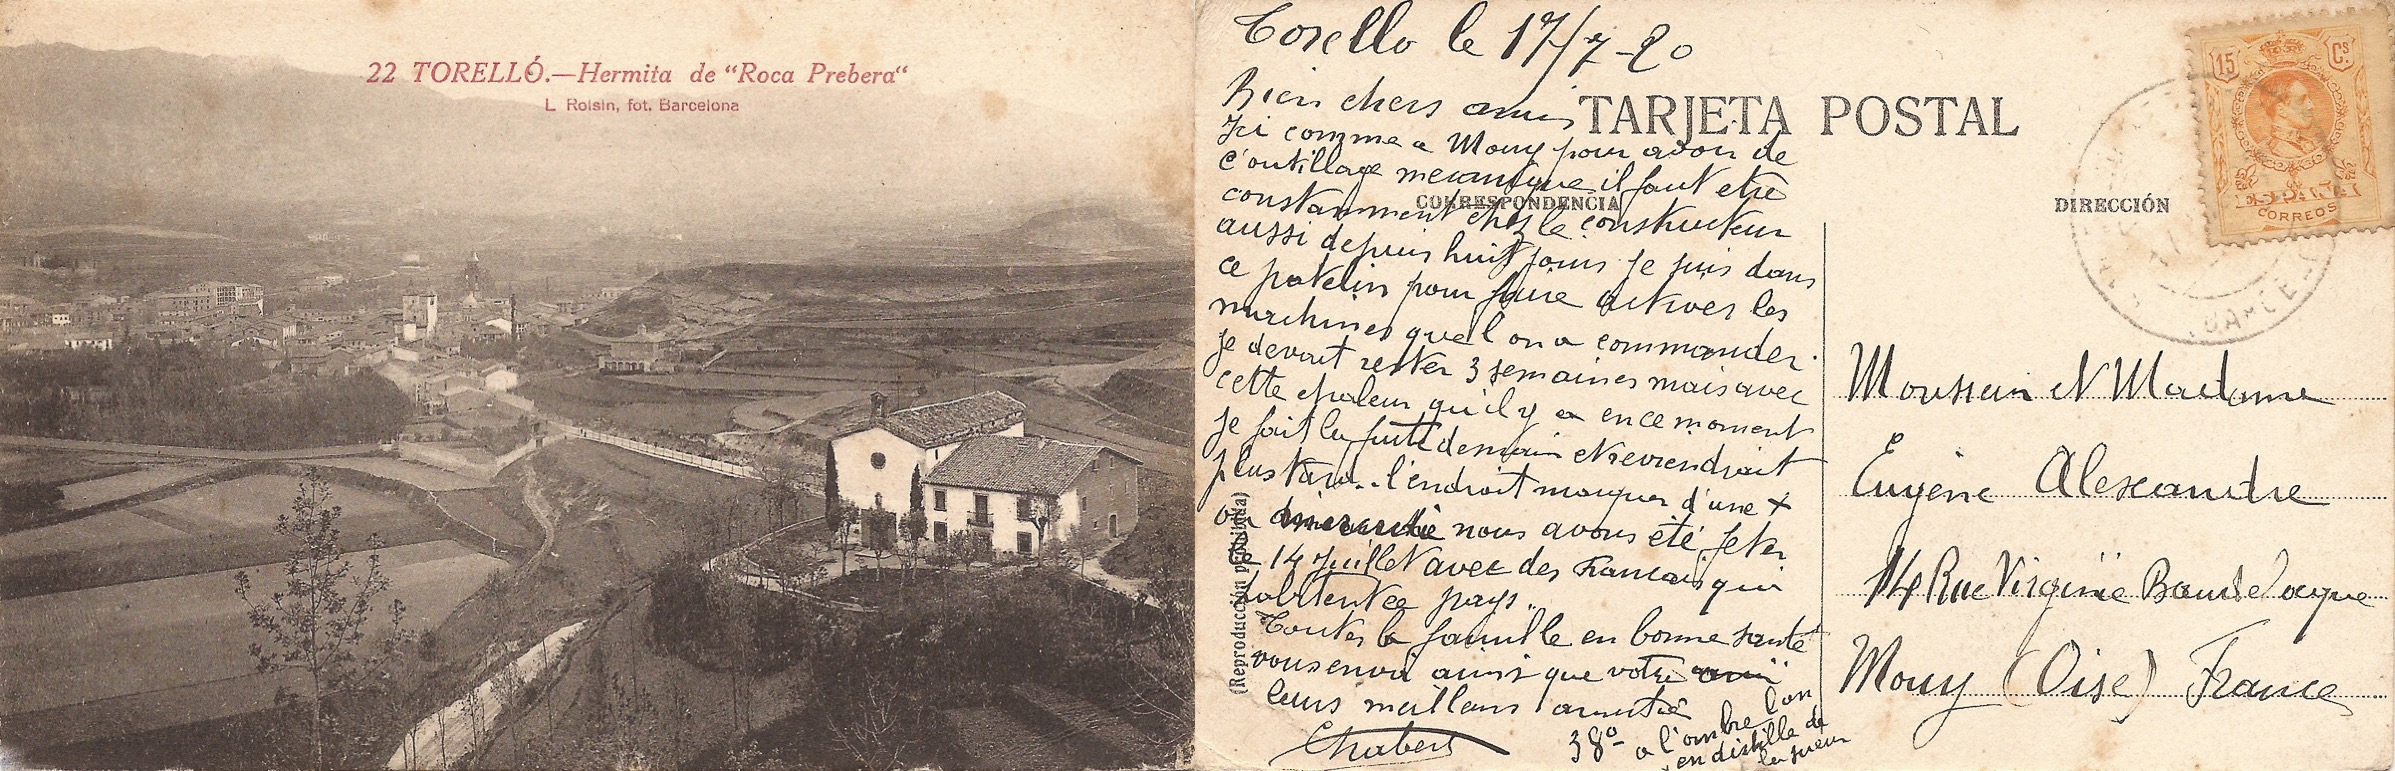 22 TORELLÓ.—Hermita de "Roca Prebera"
L Roisin, fot. Barcelona
Torello le 17/7-20
TARJETA POSTAL
CORRESPONDENCIA
DIRECCIÓN
15 Cs
CORREOS
(Reproducción prohibida)
Bien chers amis
Ici comme a Mouy pour avoir de
l'outillage mecanique il faut etre
constamment chez le constructeur
aussi depuis huit jours je suis dans
ce patelin pour faire activer les
machines que l'on a commander.
je devait rester 3 semaines mais avec
cette chaleur qu'il y a en ce moment
je fait la fuite demain et reviendrait
plus tard.. l'endroit manquer d'une +
on nous avons été feter
le 14 Juillet avec des Francais qui
habitent ce pays..
Toutes la famille en bonne santé
vous envoi ainsi que votre ami
leurs meilleurs amitié
Chabert
38°- a l'ombre l'on
en distille de
la sueur
Monsieur et Madame
Eugène Alexandre
14 Rue Virginie Baudelocque
Mouy (Oise) France